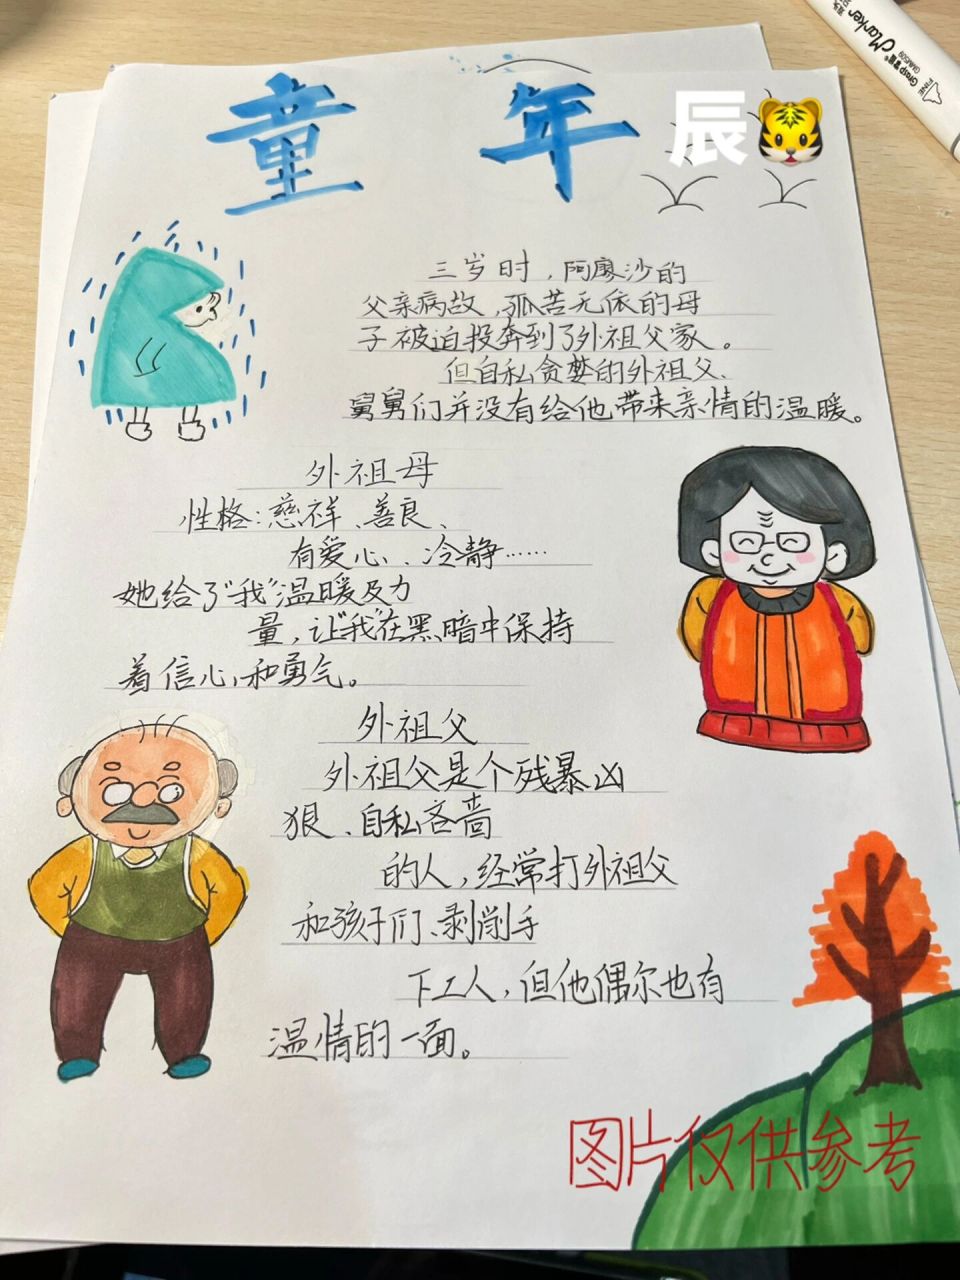 童年
辰
Marker
Grasp
FINE
三岁时,阿廖沙的
父亲病故,孤苦无依的母
子被迫投奔到了外祖父家。
但自私贪婪的外祖父、
舅舅们并没有给他带来亲情的温暖。
外祖母
性格:慈祥、善良、
有爱心、冷静……
她给了“我”温暖及力
量,让“我”在黑暗中保持
着信心和勇气。
外祖父
外祖父是个残暴凶
狠、自私吝啬
的人,经常打外祖父
和孩子们、剥削手
下工人,但他偶尔也有
温情的一面。
图片仅供参考